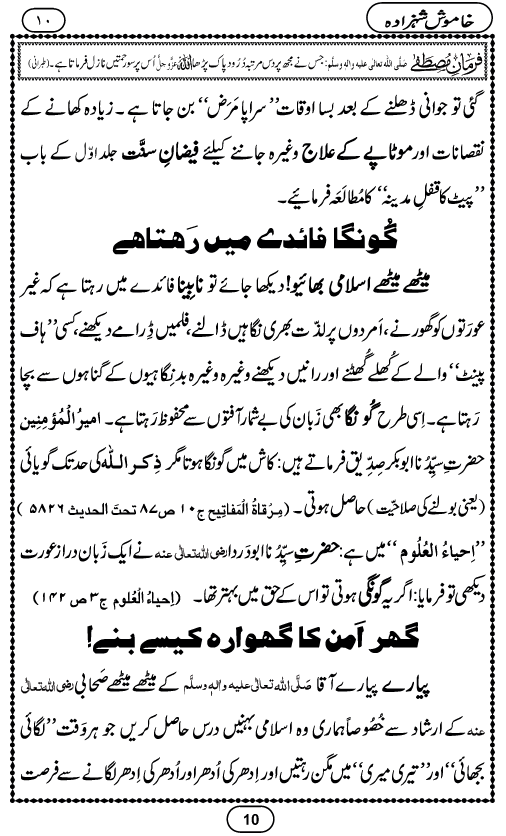 خاموش شہزادہ
۱۰
فرمانِ مصطفےٰ صَلَّی اللہ تعالٰی علیہ واٰلہٖ وسلَّم: جس نے مجھ پر دس مرتبہ دُرُود پاک پڑھا اللہ عَزَّوَجَلَّ اُس پر سو رحمتیں نازل فرماتا ہے۔ (طبرانی)
گئی تو جوانی ڈھلنے کے بعد بسا اوقات ’’سراپا مَرَض‘‘ بن جاتا ہے۔ زیادہ کھانے کے
نقصانات اور موٹاپے کے علاج وغیرہ جاننے کیلئے فیضانِ سنّت جلد اوّل کے باب
’’پیٹ کا قفلِ مدینہ‘‘ کا مُطالَعہ فرمائیے۔
گُونگا فائدے میں رَھتا ھے
میٹھے میٹھے اسلامی بھائیو! دیکھا جائے تو نابِینا فائدے میں رہتا ہے کہ غیر
عورَتوں کو گھورنے، اَمردوں پر لذّت بھری نگاہیں ڈالنے، فلمیں ڈِرامے دیکھنے، کسی ’’ہاف
پینٹ‘‘ والے کے کُھلے گُھٹنے اور رانیں دیکھنے وغیرہ وغیرہ بدنِگاہیوں کے گناہوں سے بچا
رَہتا ہے۔ اِسی طرح گونگا بھی زَبان کی بے شمار آفتوں سے محفوظ رَہتا ہے۔ امیرُ الْمُؤمِنین
حضرتِ سیِّدُنا ابوبکر صِدّیق فرماتے ہیں: کاش میں گونگا ہوتا مگر ذِکرُ اللہ کی حد تک گویائی
(یعنی بولنے کی صلاحیّت) حاصل ہوتی۔ (مِرْقاۃُ الْمَفاتیح ج۱۰ ص۸۷ تحت الحدیث ۵۸۲۶)
’’اِحیاءُ الْعُلُوم‘‘ میں ہے: حضرتِ سیِّدُنا ابودَردا رضی اللہ تعالٰی عنہ نے ایک زَبان دراز عورت
دیکھی تو فرمایا: اگر یہ گونگی ہوتی تو اس کے حق میں بہتر تھا۔ (اِحیاءُ الْعُلوم ج۳ ص ۱۴۲)
گھر اَمن کا گھوارہ کیسے بنے!
پیارے پیارے آقا صَلَّی اللہ تعالٰی علیہ واٰلہٖ وسلَّم کے میٹھے میٹھے صَحابی رضی اللہ تعالٰی
عنہ کے ارشاد سے خُصُوصاً ہماری وہ اسلامی بہنیں درس حاصل کریں جو ہر وَقت ’’لگائی
بجھائی‘‘ اور ’’تیری میری‘‘ میں مگن رہتیں اور اِدھر کی اُدھر اور اُدھر کی اِدھر لگانے سے فرصت
10